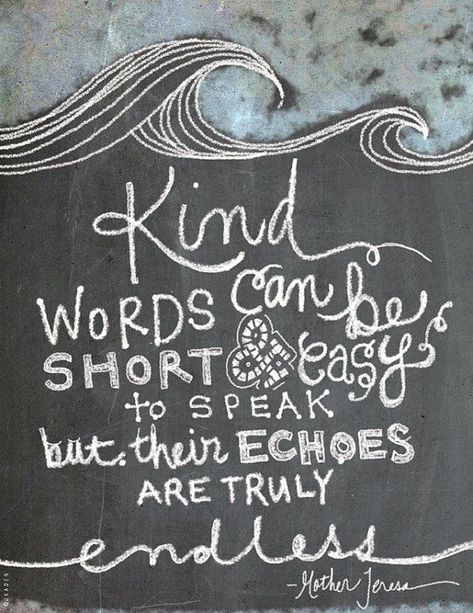 Kind
WORDS can be
SHORT & easy
to SPEAK
but their ECHOES
ARE TRULY
endless
-Mother Teresa